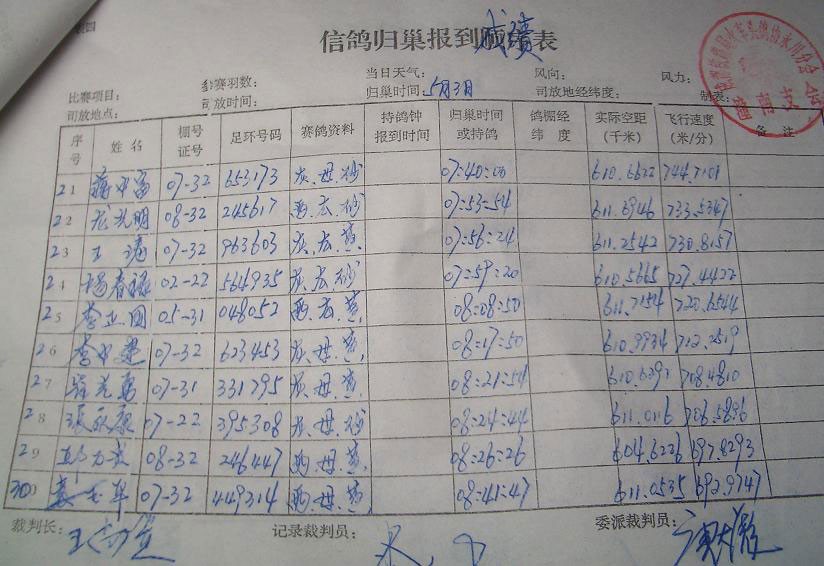 表四
信鸽归巢报到成绩表
比赛项目： 参赛羽数： 当日天气： 风向： 风力：
司放地点： 司放时间： 归巢时间：5月3月 司放地经纬度： 制表：
序号 姓名 棚号证号 足环号码 赛鸽资料 持鸽钟报到时间 归巢时间或持鸽 鸽棚经纬度 实际空距(千米) 飞行速度(米/分) 备注
21 07-32 653173 灰.母.砂 07:40:00 610.6622 744.7101
22 龙光明 08-32 245617 雨.砂 07:53:54 611.6946 733.5347
23 王涛 07-32 963603 灰.黄. 07:56:24 611.2542 730.8157
24 杨春禄 02-22 564935 灰.砂 07:59:20 610.5665 727.4422
25 李正国 05-31 048052 雨.黄 08:08:50 611.7154 720.6544
26 李中建 07-32 623453 灰.母.黄. 08:17:50 610.9934 712.2519
27 07-31 331795 灰.母.黄. 08:21:54 610.6392 708.4810
28 张永康 07-22 395308 灰.母.砂 08:24:44 611.0116 706.5896
29 08-32 246447 雨.母.黄. 08:26:26 604.6226 697.8293
30 07-32 449314 雨.母.黄. 08:41:47 611.0535 692.9747
裁判长： 记录裁判员： 委派裁判员：